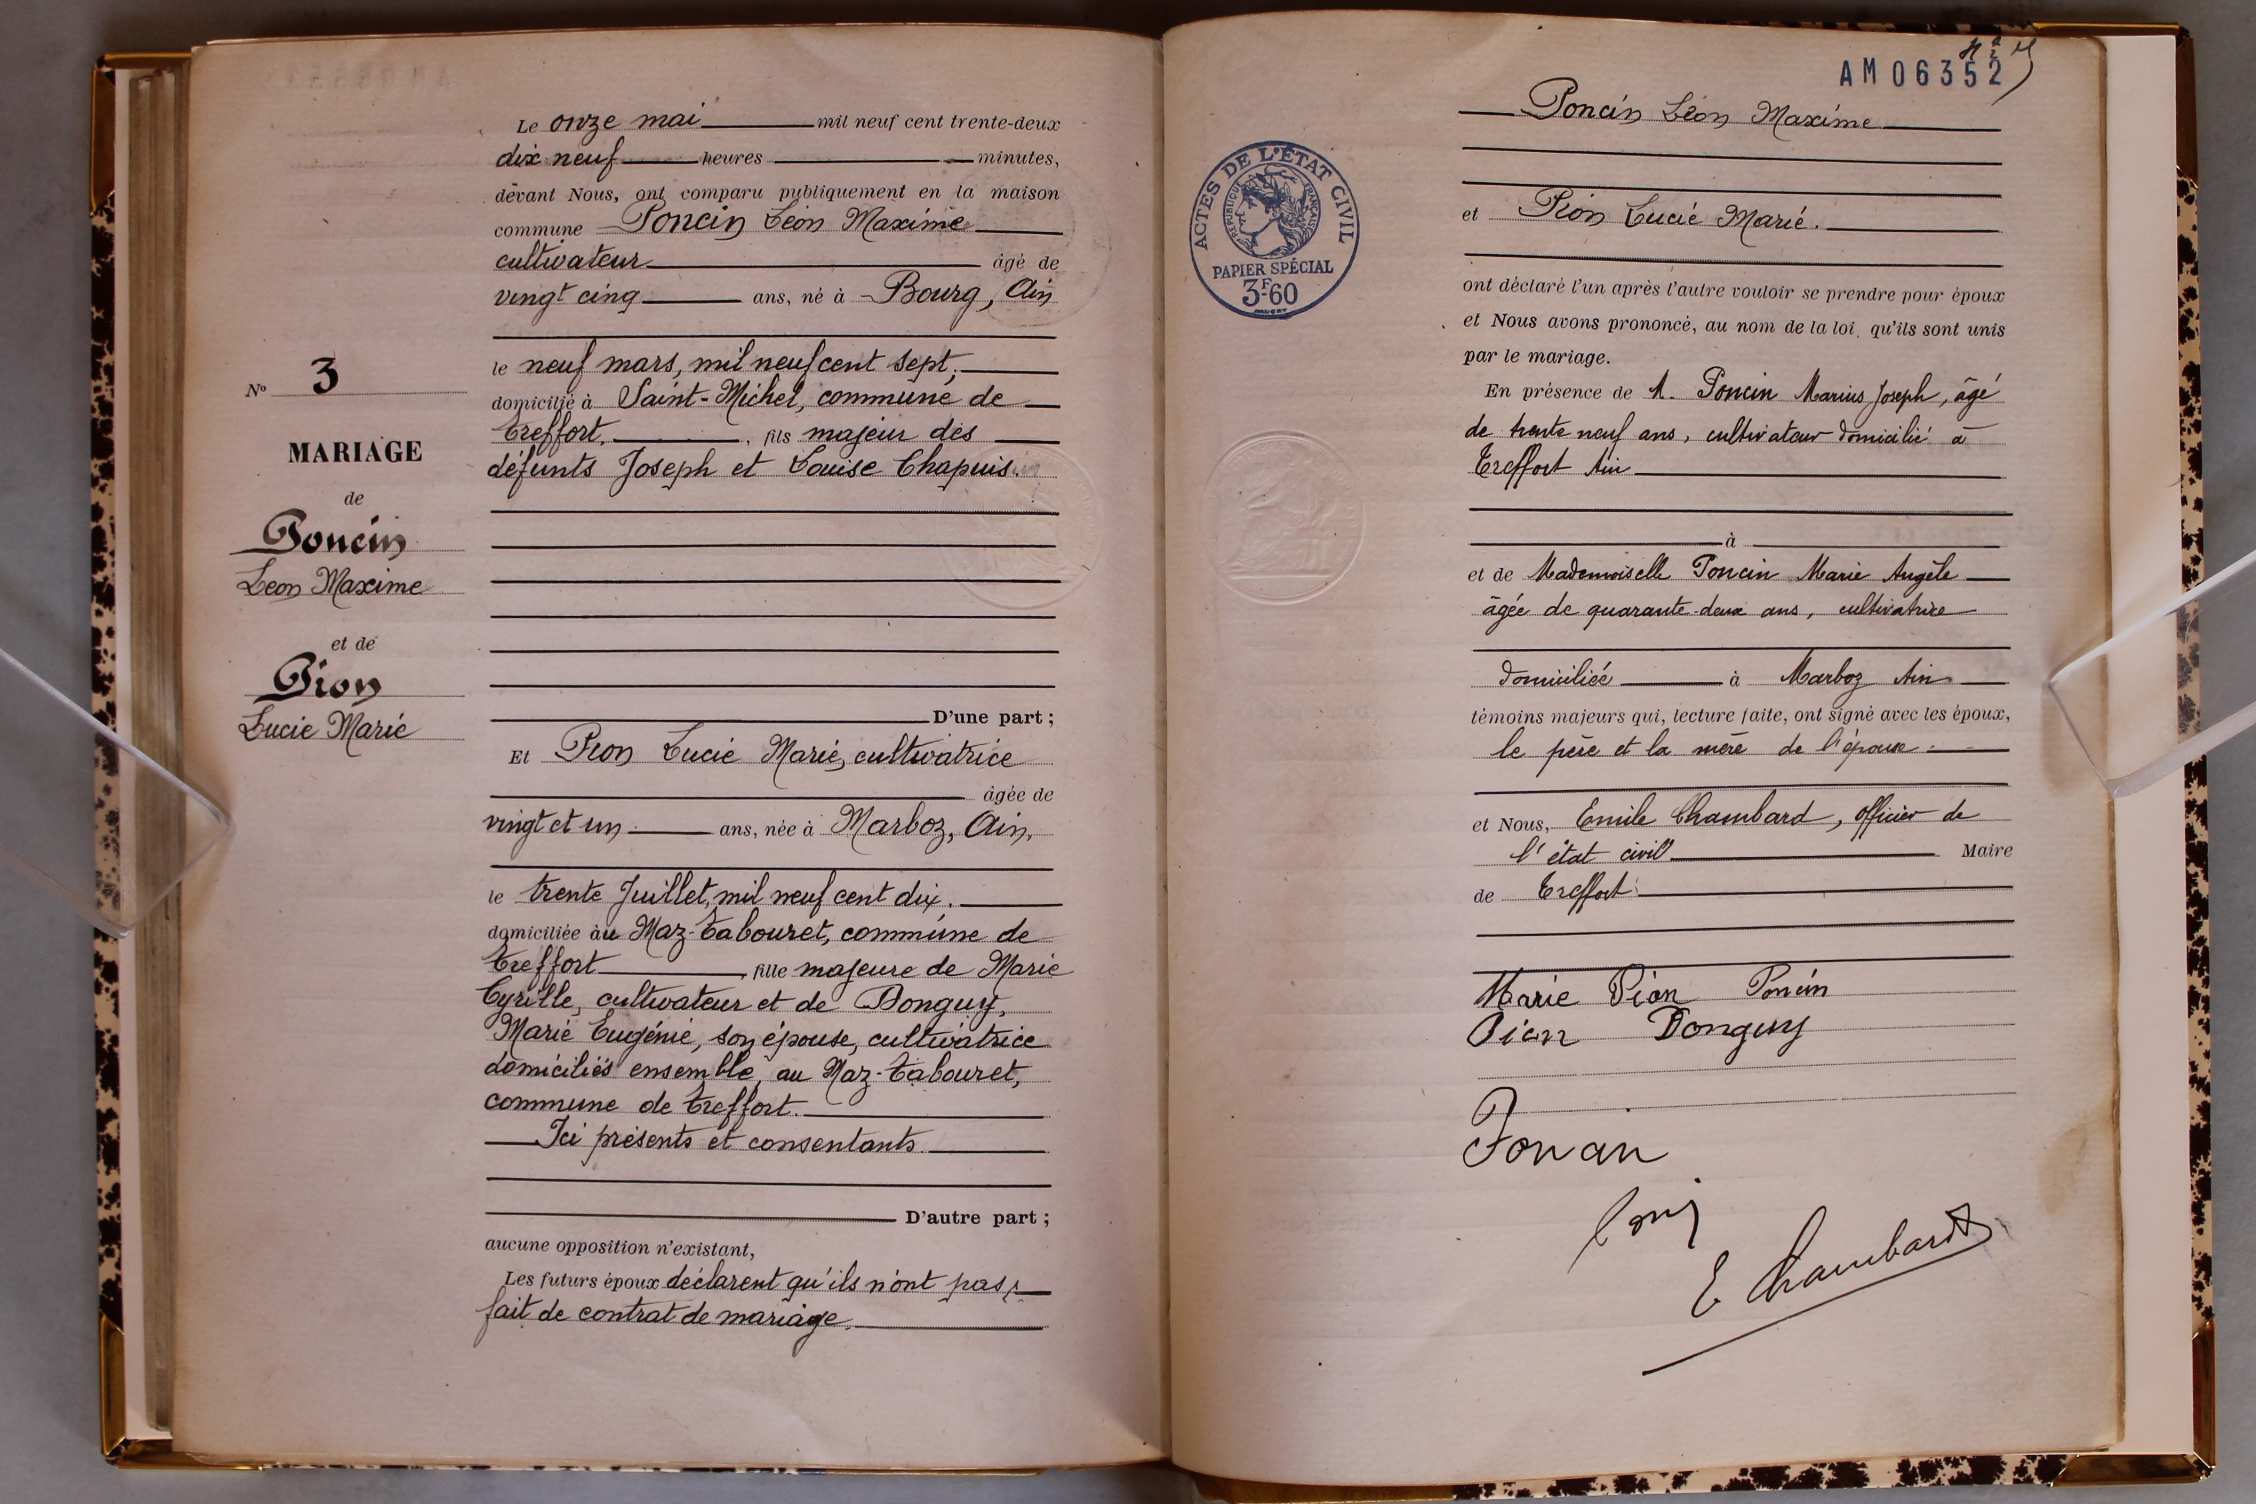 Le onze mai mil neuf cent trente-deux
dix neuf heures minutes,
devant Nous, ont comparu publiquement en la maison
commune Poncin Léon Maxime
cultivateur âgé de
vingt cinq ans, né à Bourg, Ain
le neuf mars, mil neuf cent sept,
domicilié à Saint-Michel, commune de
Treffort, fils majeur des
défunts Joseph et Louise Chapuis.
N° 3
MARIAGE
de
Poncin
Léon Maxime
et de
Pion
Lucie Marie
D'une part ;
Et Pion Lucie Marie, cultivatrice
âgée de
vingt et un ans, née à Marboz, Ain,
le trente Juillet, mil neuf cent dix,
domiciliée au Maz-Tabouret, commune de
Treffort fille majeure de Marie
Cyrille, cultivateur et de Donguy,
Marie Eugénie, son épouse, cultivatrice
domiciliés ensemble, au Maz-Tabouret,
commune de Treffort.
Ici présents et consentants.
D'autre part ;
aucune opposition n'existant,
Les futurs époux déclarent qu'ils n'ont pas
fait de contrat de mariage.
AM 06352
ACTES DE L'ÉTAT CIVIL
RÉPUBLIQUE FRANÇAISE
PAPIER SPÉCIAL
3F-60
Poncin Léon Maxime
et Pion Lucie Marie.
ont déclaré l'un après l'autre vouloir se prendre pour époux
et Nous avons prononcé, au nom de la loi, qu'ils sont unis
par le mariage.
En présence de M. Poncin Marius Joseph, âgé
de trente neuf ans, cultivateur domicilié à
Treffort Ain
à
et de Mademoiselle Poncin Marie Angèle
âgée de quarante-deux ans, cultivatrice
domiciliée à Marboz Ain
témoins majeurs qui, lecture faite, ont signé avec les époux,
le père et la mère de l'épouse.
et Nous, Emile Chambard, officier de
l'état civil Maire
de Treffort
Marie Pion Poncin
Pion Donguy
Poncin
E Chambard